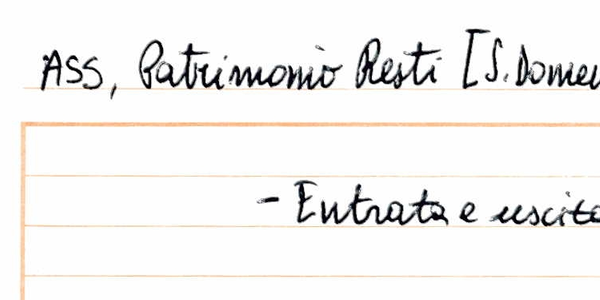 ASS, Patrimonio Resti [S. Domen
- Entrata e uscita